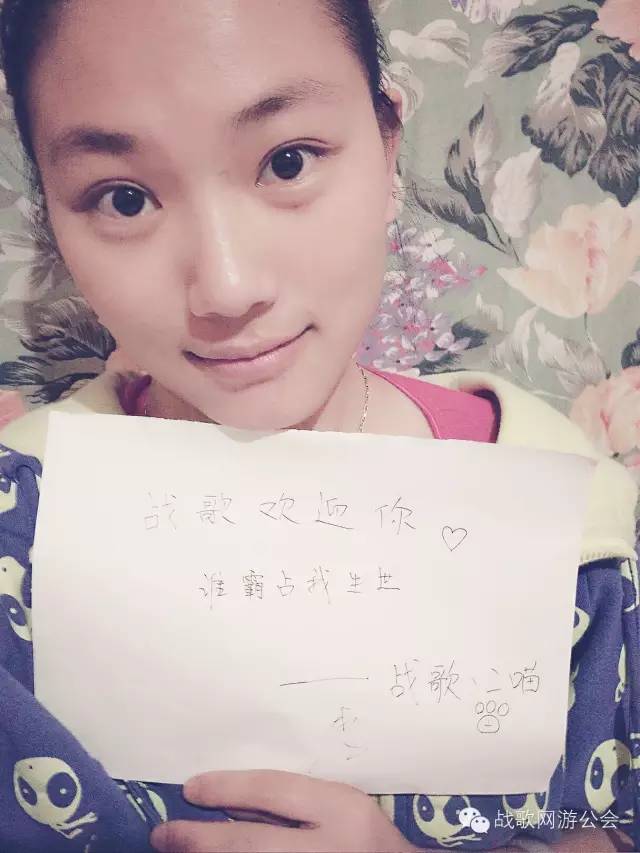 战歌欢迎你♡
谁霸占我生世
——战歌·二喵
战歌网游公会